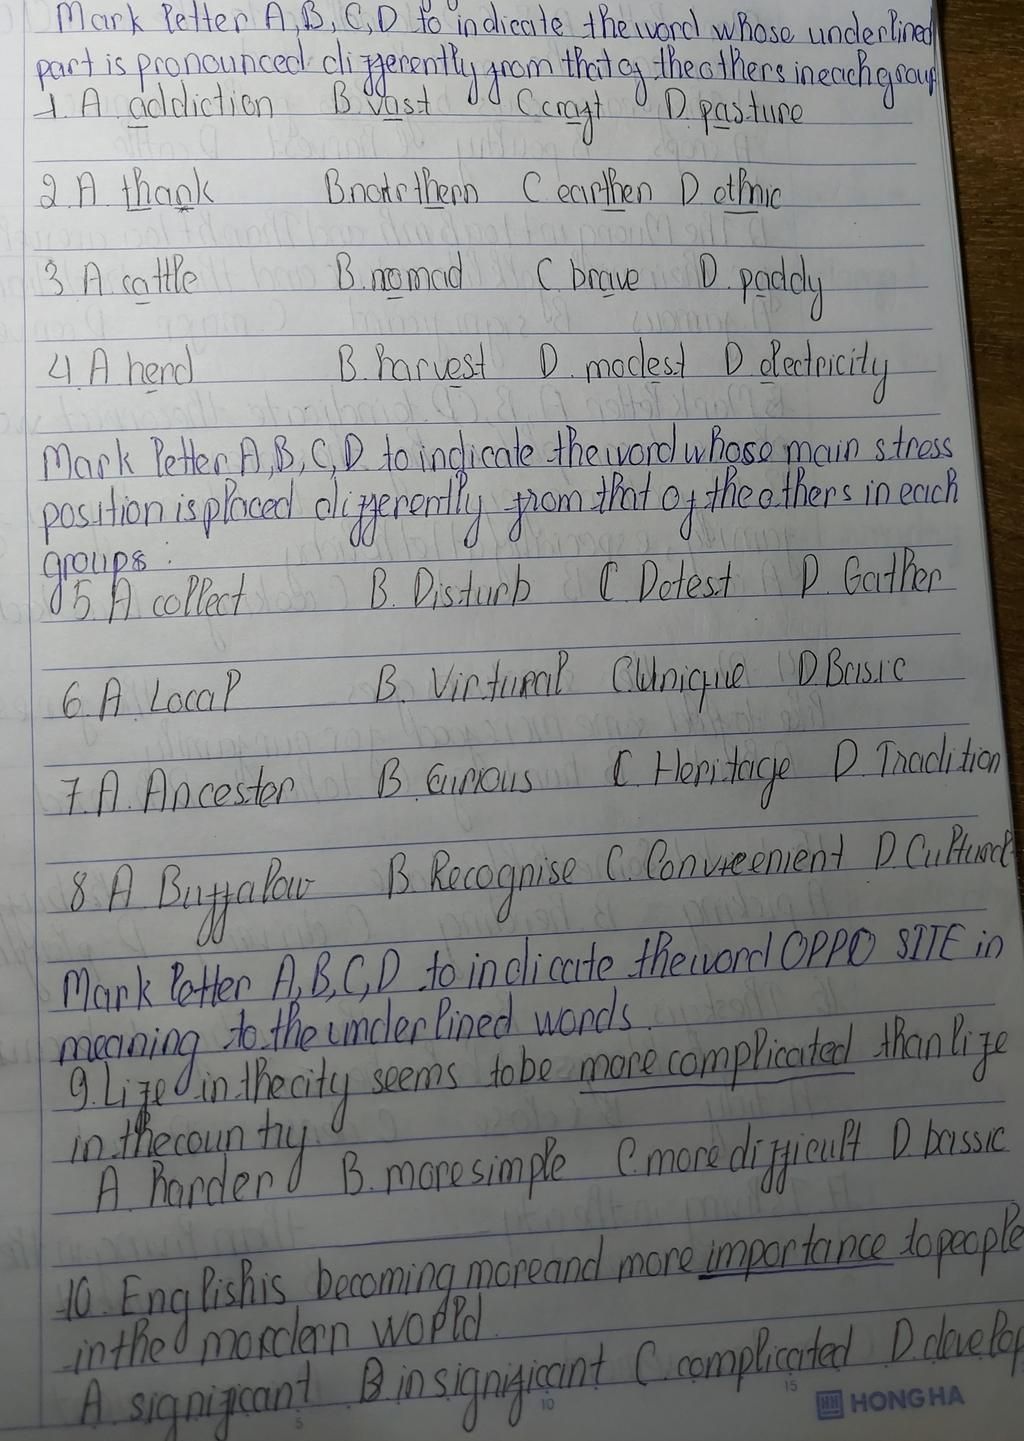 Mark letter A,B,C,D to indicate the word whose underlined
part is pronounced differently from that of the others in each group
1. A. addiction B. vast C. craft D. pasture
2. A. thank B. northern C. earthen D. ethnic
3. A. cattle B. nomad C. brave D. paddy
4. A. herd B. harvest D. modest D. electricity
Mark letter A,B,C,D to indicate the word whose main stress
position is placed differently from that of the others in each
groups.
5. A. collect B. Disturb C. Detest D. Gather
6. A. Local B. Virtural C. Unique D. Basic
7. A. Ancester B. Curious C. Heritage D. Tradition
8. A. Buffalow B. Recognise C. Convieenient D. Cultural
Mark letter A,B,C,D to indicate the word OPPOSITE in
meaning to the underlined words.
9. Life in the city seems to be more complicated than life
in the country.
A. harder B. more simple C. more difficult D. bassic
10. English is becoming more and more importance to people
in the mordern world.
A. significant B. insignificant C. complicated D. develop
HONG HA
5 10 15